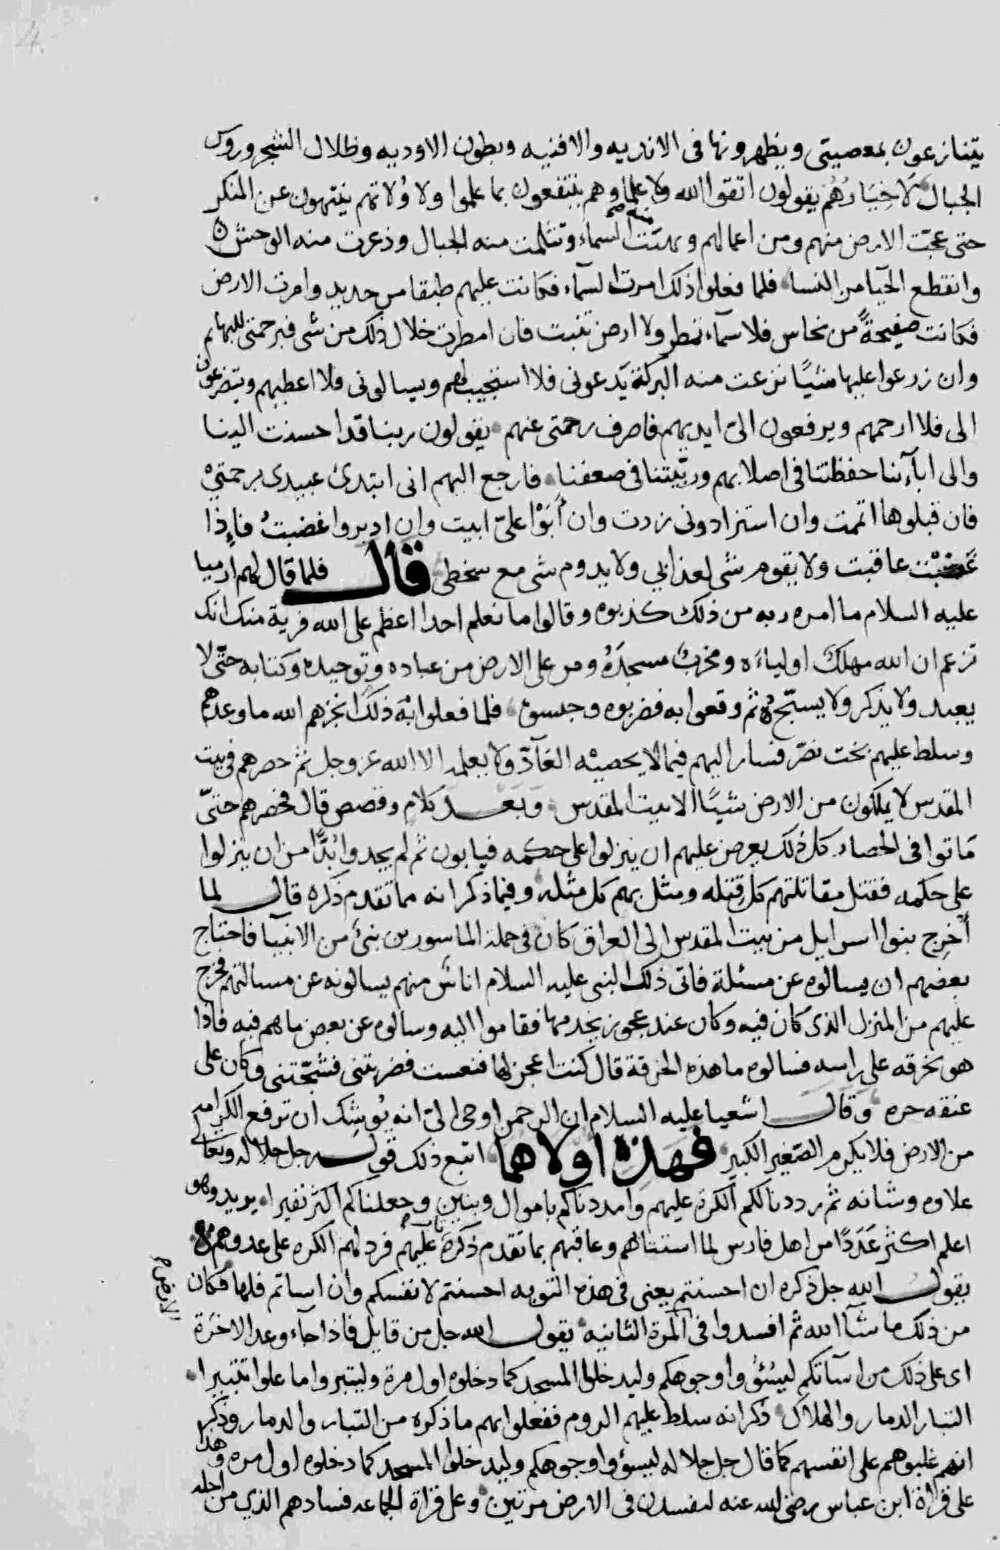 يتنازعون بمعصيتي ويظهرونها في الاندية والافنيه وبطون الاوديه وظلال الشجر وروس
الجبال لا خيارهم يقولون اتقوا الله ولا علماوهم ينتفعون بما علموا ولا ولاتهم ينتهون عن المنكر
حتى عجت الارض منهم ومن اعمالهم وبهتت منهم السماء وتثلمت منه الجبال وذعرت منه الوحش
وانقطع الحيا من النسا فلما فعلوا ذلك امرت السماء فكانت عليهم طبقا من حديد وامرت الارض
فكانت صفيحةً من نحاس فلا سماء تمطر ولا ارض تنبت فان امطرت خلال ذلك من شي فبرحمتى للبهائم
وان زرعوا عليها شيئًا نزعت منه البركة يدعونى فلا استجيب لهم ويسالونى فلا اعطيهم ويتضرعون
الى فلا ارحمهم ويرفعون الىّ ايديهم فاصرف رحمتى عنهم يقولون ربنا قد احسنت الينا
والى ابآئنا حفظتنا في اصلابهم وربّيتنا في ضعفنا فارجع اليهم انى ابتدئ عبيدى برحمتي
فان قبلوها اتممت وان استزادونى زدت وان أبَوْا علىّ ابيت وان ادبروا غضبتُ فاِذا
غضبْت عاقبت ولا يقوم شى لعذابي ولا يدوم شى مع سخطى قال فلما قال لهم ارميا
عليه السلام ما امره ربه من ذلك كذبوه وقالوا ما نعلم احدا اعظم على الله فرية منك انك
تزعم ان الله مهلك اولياءه ومخرب مسجدَهُ ومن على الارض من عباده وتوحيده وكتابه حتى لا
يعبد ولا يذكر ولا يسبّح ثم وقعوا به فضربوه وحبسوه فلما فعلوا به ذلك انجزهم الله ما وعدهم
وسلط عليهم بخت نصر فسار اليهم فيما لا يحصيه العآدّ ولا يعلمه الا الله عز وجل ثم حصرهم في بيت
المقدس لا يملكون من الارض شيئًا الا بيت المقدس وبعد كلام وقصص قال فحصرهم حتىّ
ماتوا في الحصار كل ذلك يعرض عليهم ان ينزلوا على حكمه فيابون ثم لم يجدوا بُدًّا من ان ينزلوا
على حكمه فقتل مقاتلتهم كل قتله ومثل بهم كل مثله وفيما ذكرا نه مما تقدم ذكره قال لما
أخرِج بنوا اسرايل من بيت المقدس الى العراق كان في جملة الماسورين نبىّ من الانبيا فاحتاج
بعضهم ان يسالوه عن مسئلة فاتى ذلك النبى عليه السلام اناسٌ منهم يسالونه عن مسالتهم فخرج
عليهم من المنزل الذى كان فيه وكان عند عجوز يخدمها فقاموا اليه وسالوه عن بعض ما هم فيه فاذا
هو بخرقه على راسه فسالوه ما هذه الخرقة قال كنت اعجن لها فنعست فضربتنى فشجّتنى وكان على
عنقه جره وقال اشعيا عليه السلام ان الرحمن اوحى الىّ انه يُوشِك ان ترفع الكرامه
من الارض فلا يكرم الصغير الكبير فهذه اولاهما اتبع ذلك قوله جل جلاله وتعالى
علاوه وشانه ثم رددنا لكم الكرة عليهم وامددناكم باموال وبنين وجعلناكم اكثر نفيرا يريد وهو
اعلم اكثر عَدَدًا من اهل فارس لما استنالهم وعاقبهم بما تقدم ذكره تاب عليهم فرد لهم الكره على عدوهم
يقول الله جل ذكره ان احسنتم يعنى في هذه التوبه احسنتم لانفسكم وان اساتم فلها فكان
من ذلك ما شآ الله ثم افسدوا في المرة الثانيه يقول الله جل من قايل فاذا جآء وعد الاخرة
اى على ذلك من اسآتكم ليسُئوا وجوهكم وليدخلوا المسجد كما دخلوه اول مرة وليتبروا ما علوا تتبيرا
التبار الدمار والهلاك ذكر انه سلط عليهم الروم ففعلوا بهم ما ذكره من التبار والدمار وذكر
انهم غلبوهم على انفسهم كما قال جل جلاله ليسؤوا وجوهكم وليدخلوا المسجد كما دخلوه اول مره وهذا
على قراة ابن عباس رضى الله عنه لتفسدن في الارض مرتين وعلى قراة الجماعه فسادهم الذي من اجله